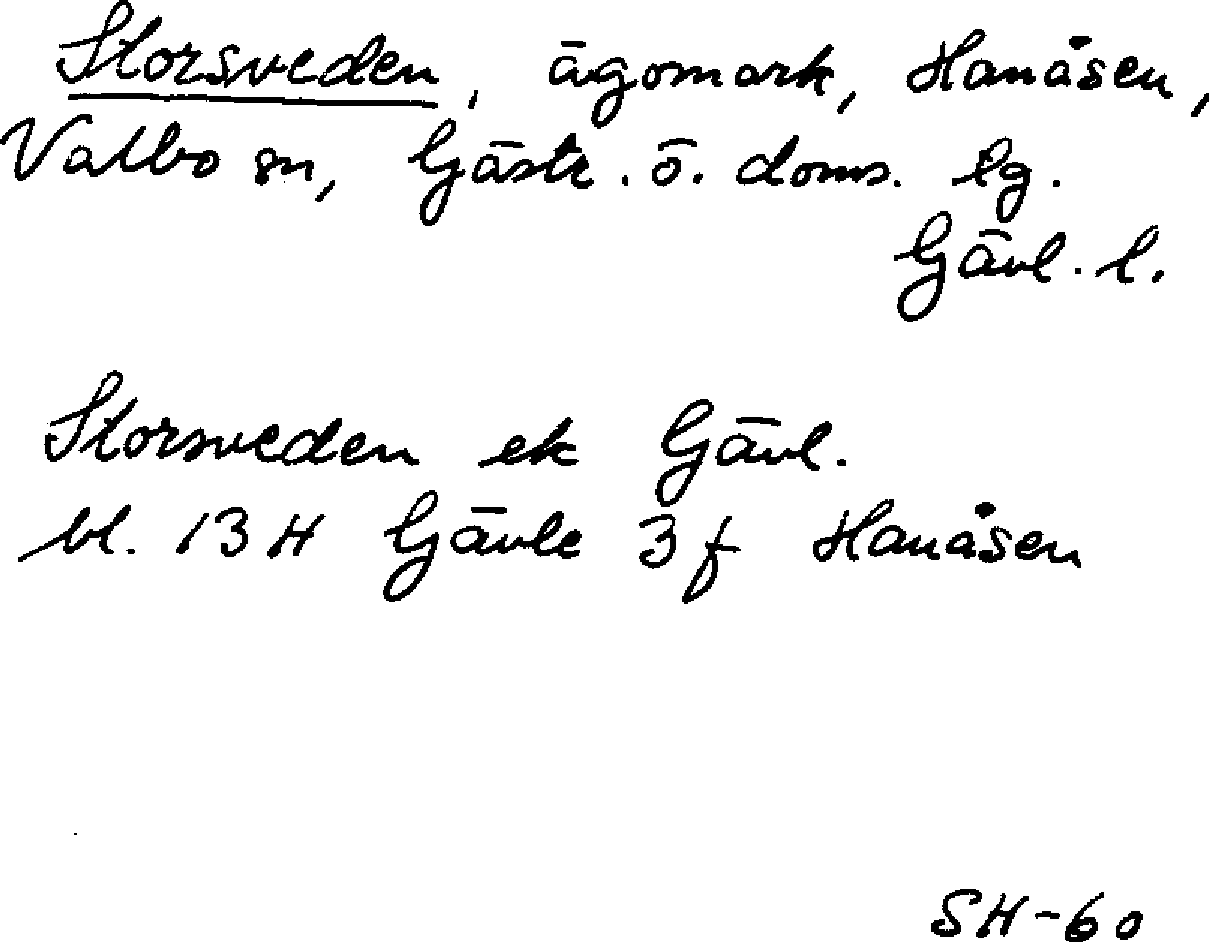 Storsveden, ägomark, Hanåsen,
Valbo sn, Gästr. ö. doms. lg.
Gävl. l.
Storsveden ek Gävl.
bl. 13 H Gävle 3 f Hanåsen
SH-60